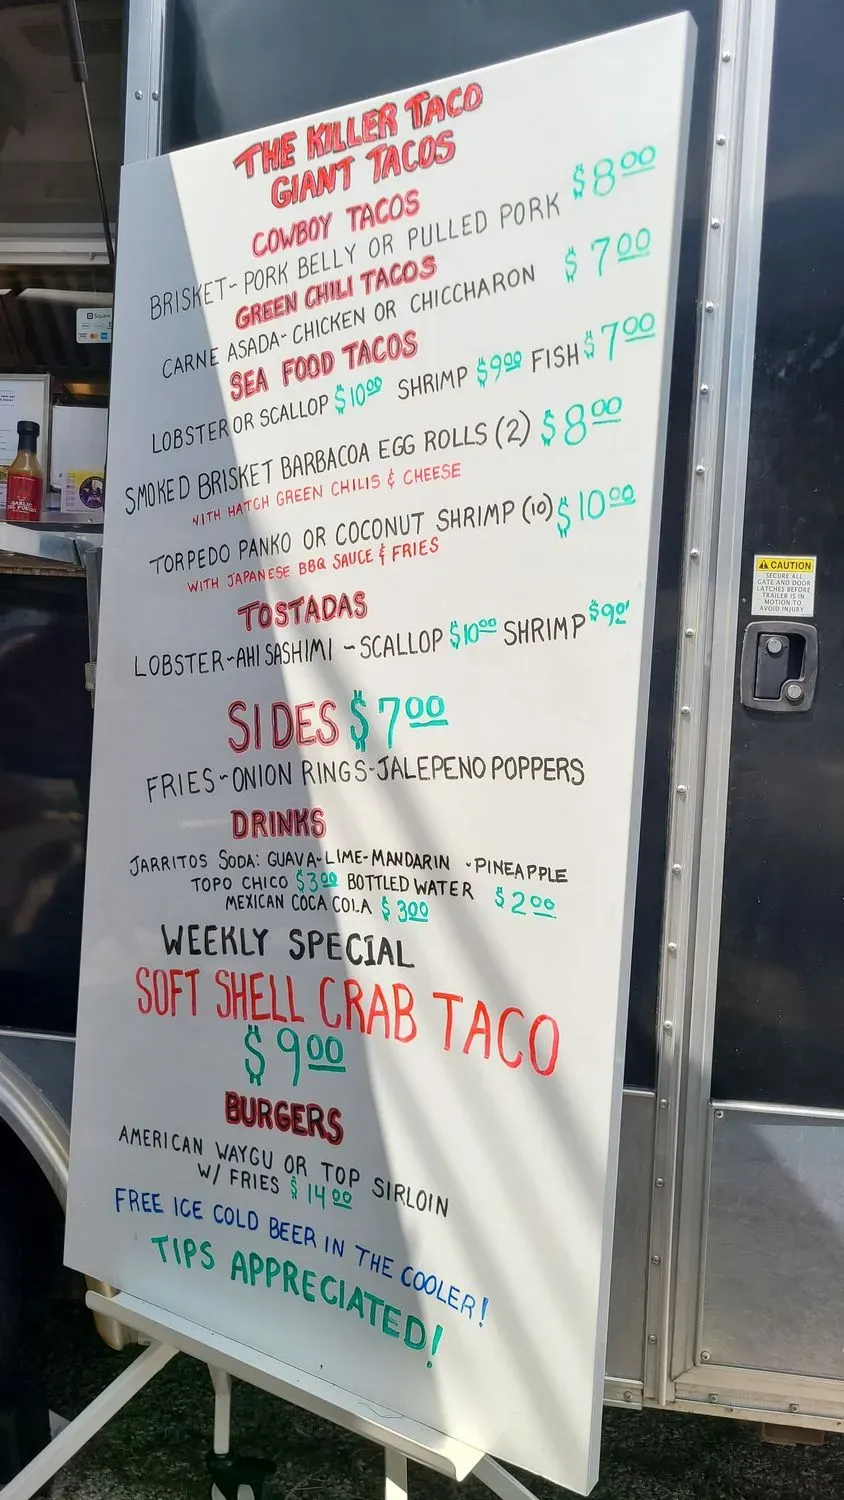 THE KILLER TACO
GIANT TACOS
COWBOY TACOS
BRISKET~PORK BELLY OR PULLED PORK $8.00
GREEN CHILI TACOS
CARNE ASADA~CHICKEN OR CHICCHARON $7.00
SEA FOOD TACOS
LOBSTER OR SCALLOP $10.00 SHRIMP $9.00 FISH $7.00
SMOKED BRISKET BARBACOA EGG ROLLS (2) $8.00
WITH HATCH GREEN CHILIS & CHEESE
TORPEDO PANKO OR COCONUT SHRIMP (10) $10.00
WITH JAPANESE BBQ SAUCE & FRIES
TOSTADAS
LOBSTER~AHI SASHIMI ~ SCALLOP $10.00 SHRIMP $9.00
SIDES $7.00
FRIES~ONION RINGS~JALEPENO POPPERS
DRINKS
JARRITOS SODA: GUAVA~LIME~MANDARIN ~PINEAPPLE
TOPO CHICO $3.00 BOTTLED WATER $2.00
MEXICAN COCA COLA $3.00
WEEKLY SPECIAL
SOFT SHELL CRAB TACO
$9.00
BURGERS
AMERICAN WAYGU OR TOP SIRLOIN
W/ FRIES $14.00
FREE ICE COLD BEER IN THE COOLER!
TIPS APPRECIATED!
Square
GARLIC
DEL FUEGO
CAUTION
SECURE ALL
GATE AND DOOR
LATCHES BEFORE
TRAILER IS IN
MOTION TO
AVOID INJURY.